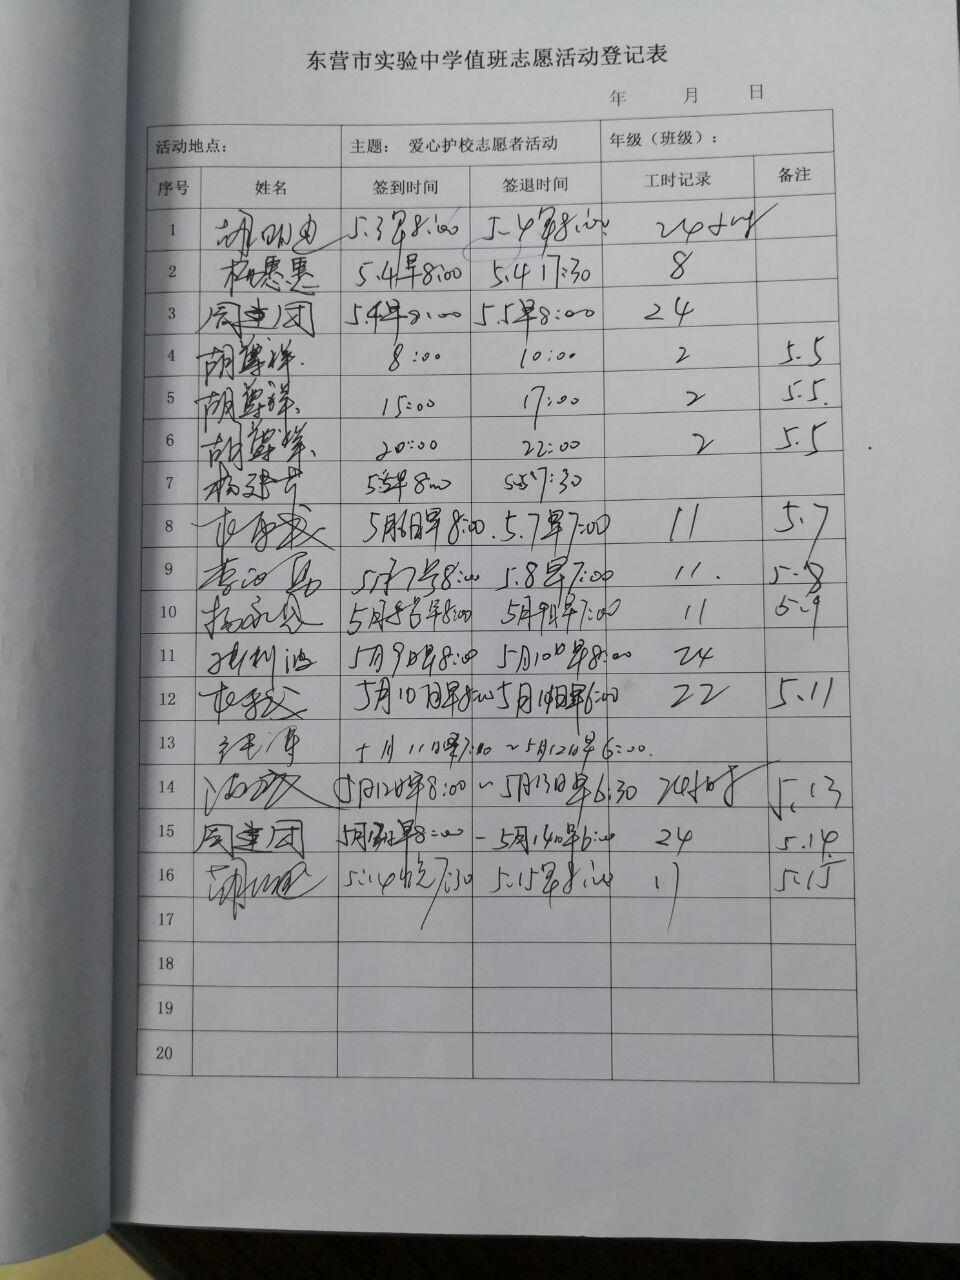 东营市实验中学值班志愿活动登记表
年 月 日
活动地点： 主题： 爱心护校志愿者活动 年级（班级）：
序号 姓名 签到时间 签退时间 工时记录 备注
1 5.3早8:00 5.4早8:00 24小时
2 惠惠 5.4早8:00 5.4 17:30 8
3 周建团 5.4早8:00 5.5早8:00 24
4 胡尊祥 8:00 10:00 2 5.5
5 胡尊祥 15:00 17:00 2 5.5.
6 胡尊祥 20:00 22:00 2 5.5
7 5.5早8:00 5.5 17:30
8 5月6日早8:00. 5.7早7:00 11 5.7
9 5月7号8:00 5.8早7:00 11. 5.8
10 5月8号早8:00 5月9日早7:00 11 5.9
11 5月9日早8:00 5月10日早8:00 24
12 5月10日早8:00 5月11日早6:00 22 5.11
13 月11日 7:00 ~5月12日早6:00.
14 5月12日早8:00 ~ 5月13日早6:30 24小时 5.13
15 周建团 5月13日早8:00 - 5月14日早6:00 24 5.14
16 5.14晚7:30 5.15早8:00 17 5.15
17
18
19
20